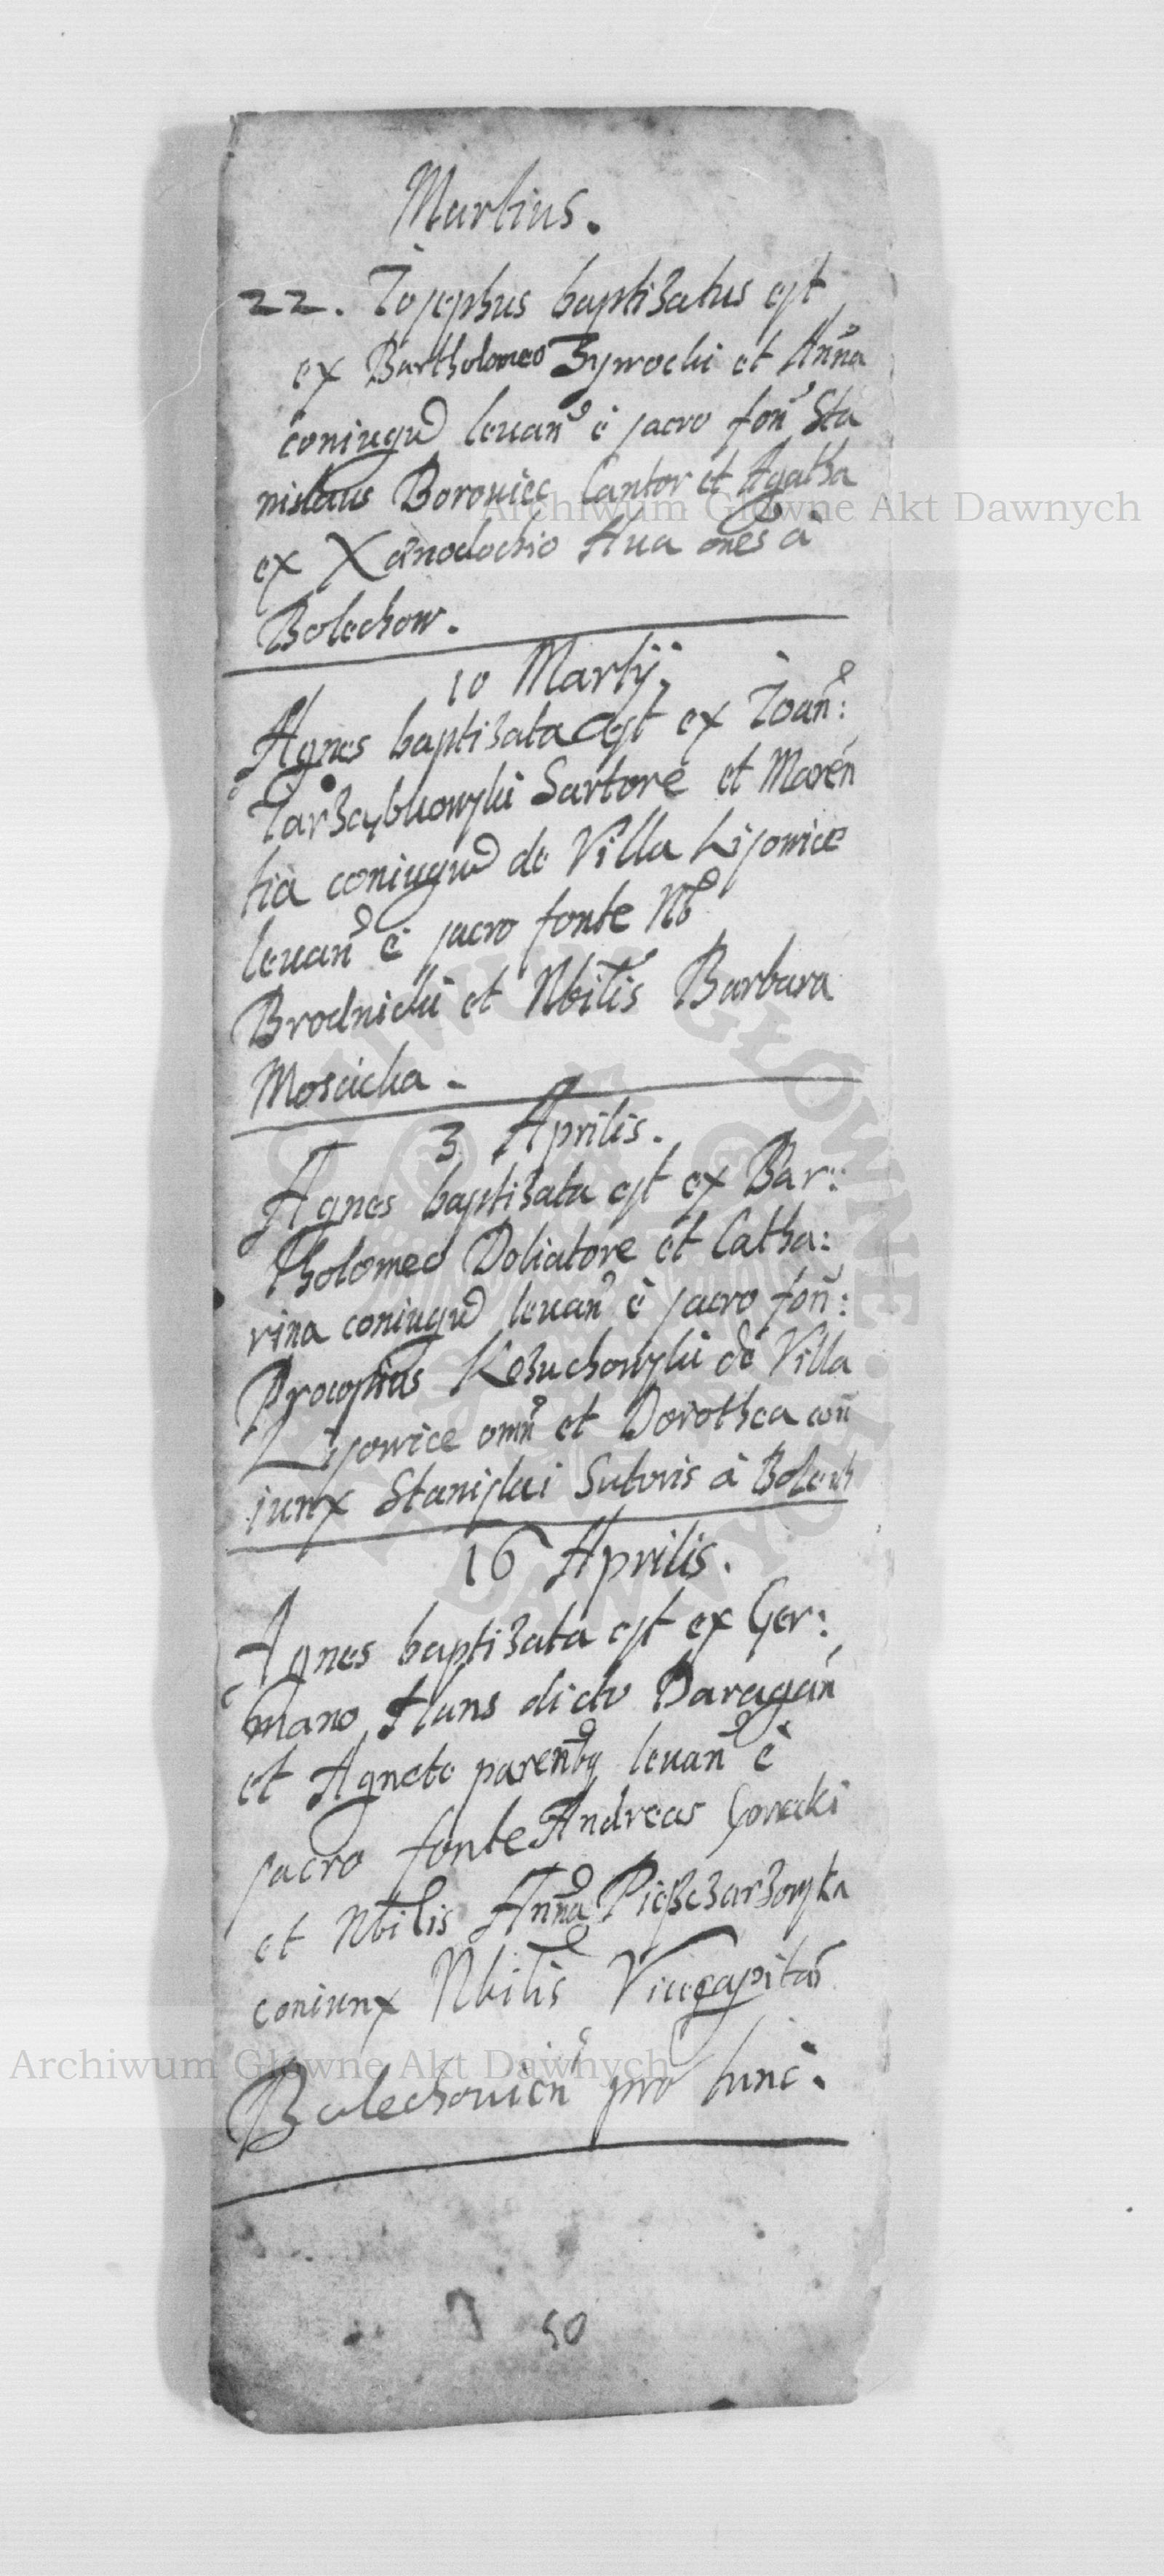 Martius.
22. Josephus baptizatus est
ex Bartholomeo Zywocki et Anna
coniugū leuanꝰ è sacro fonꝰ Sta
nislaus Borouiec Cantor et Agatha
ex Xænodochio Aua oñes à
Bolechow.
10 Martij.
Agnes baptizata est ex Joañ:
Jarzębkowski Sartore et Maren
tia coniugū de Villa Lisowice
leuanꝰ è sacro fonte Nb
Brodnicki et Nbilis Barbara
Moscicka.
3 Aprilis.
Agnes baptizata est ex Bar:
tholomeo Doliatore et Catha:
rina coniugū leuanꝰ è sacro foñ:
Procopius Kozuchowski de Villa
Lisowice omñ et Dorothea con
iunx Stanislai Sutoris à Bolech
16 Aprilis.
Agnes baptizata est ex Ger:
mano Hans dicto Daragan
et Agnete parenbꝫ leuanꝰ è
sacro fonte Andreas Gorecki
et Nbilis Anna Pieszczarzowska
coniunx Nbilis Vicecapitā
Bolechouien pro tunc.
50
Archiwum Główne Akt Dawnych
Archiwum Główne Akt Dawnych